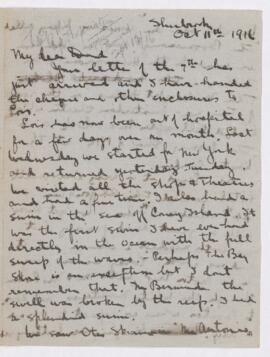 Sherbrooke
Oct 11th, 1916
My dear David
Your letter of the 7th has
just arrived and I have handed
the cheque and other enclosures to
Lois.
Lois has now been out of hospital
for a few days over a month. Last
Wednesday we started for New York
and returned yesterday Tuesday.
We visited all the shops & Theatres
and had a fine time. I also had a
swim in the sea off Coney Island. It
was the first swim I have ever had
directly in the ocean with the full
sweep of the waves. - Perhaps the Bay
Shore is an exception but I don't
remember that. In Bermuda the
swell was broken by the reef. I had
a splendid swim.
We saw Otis Skinner in Mr Antonio